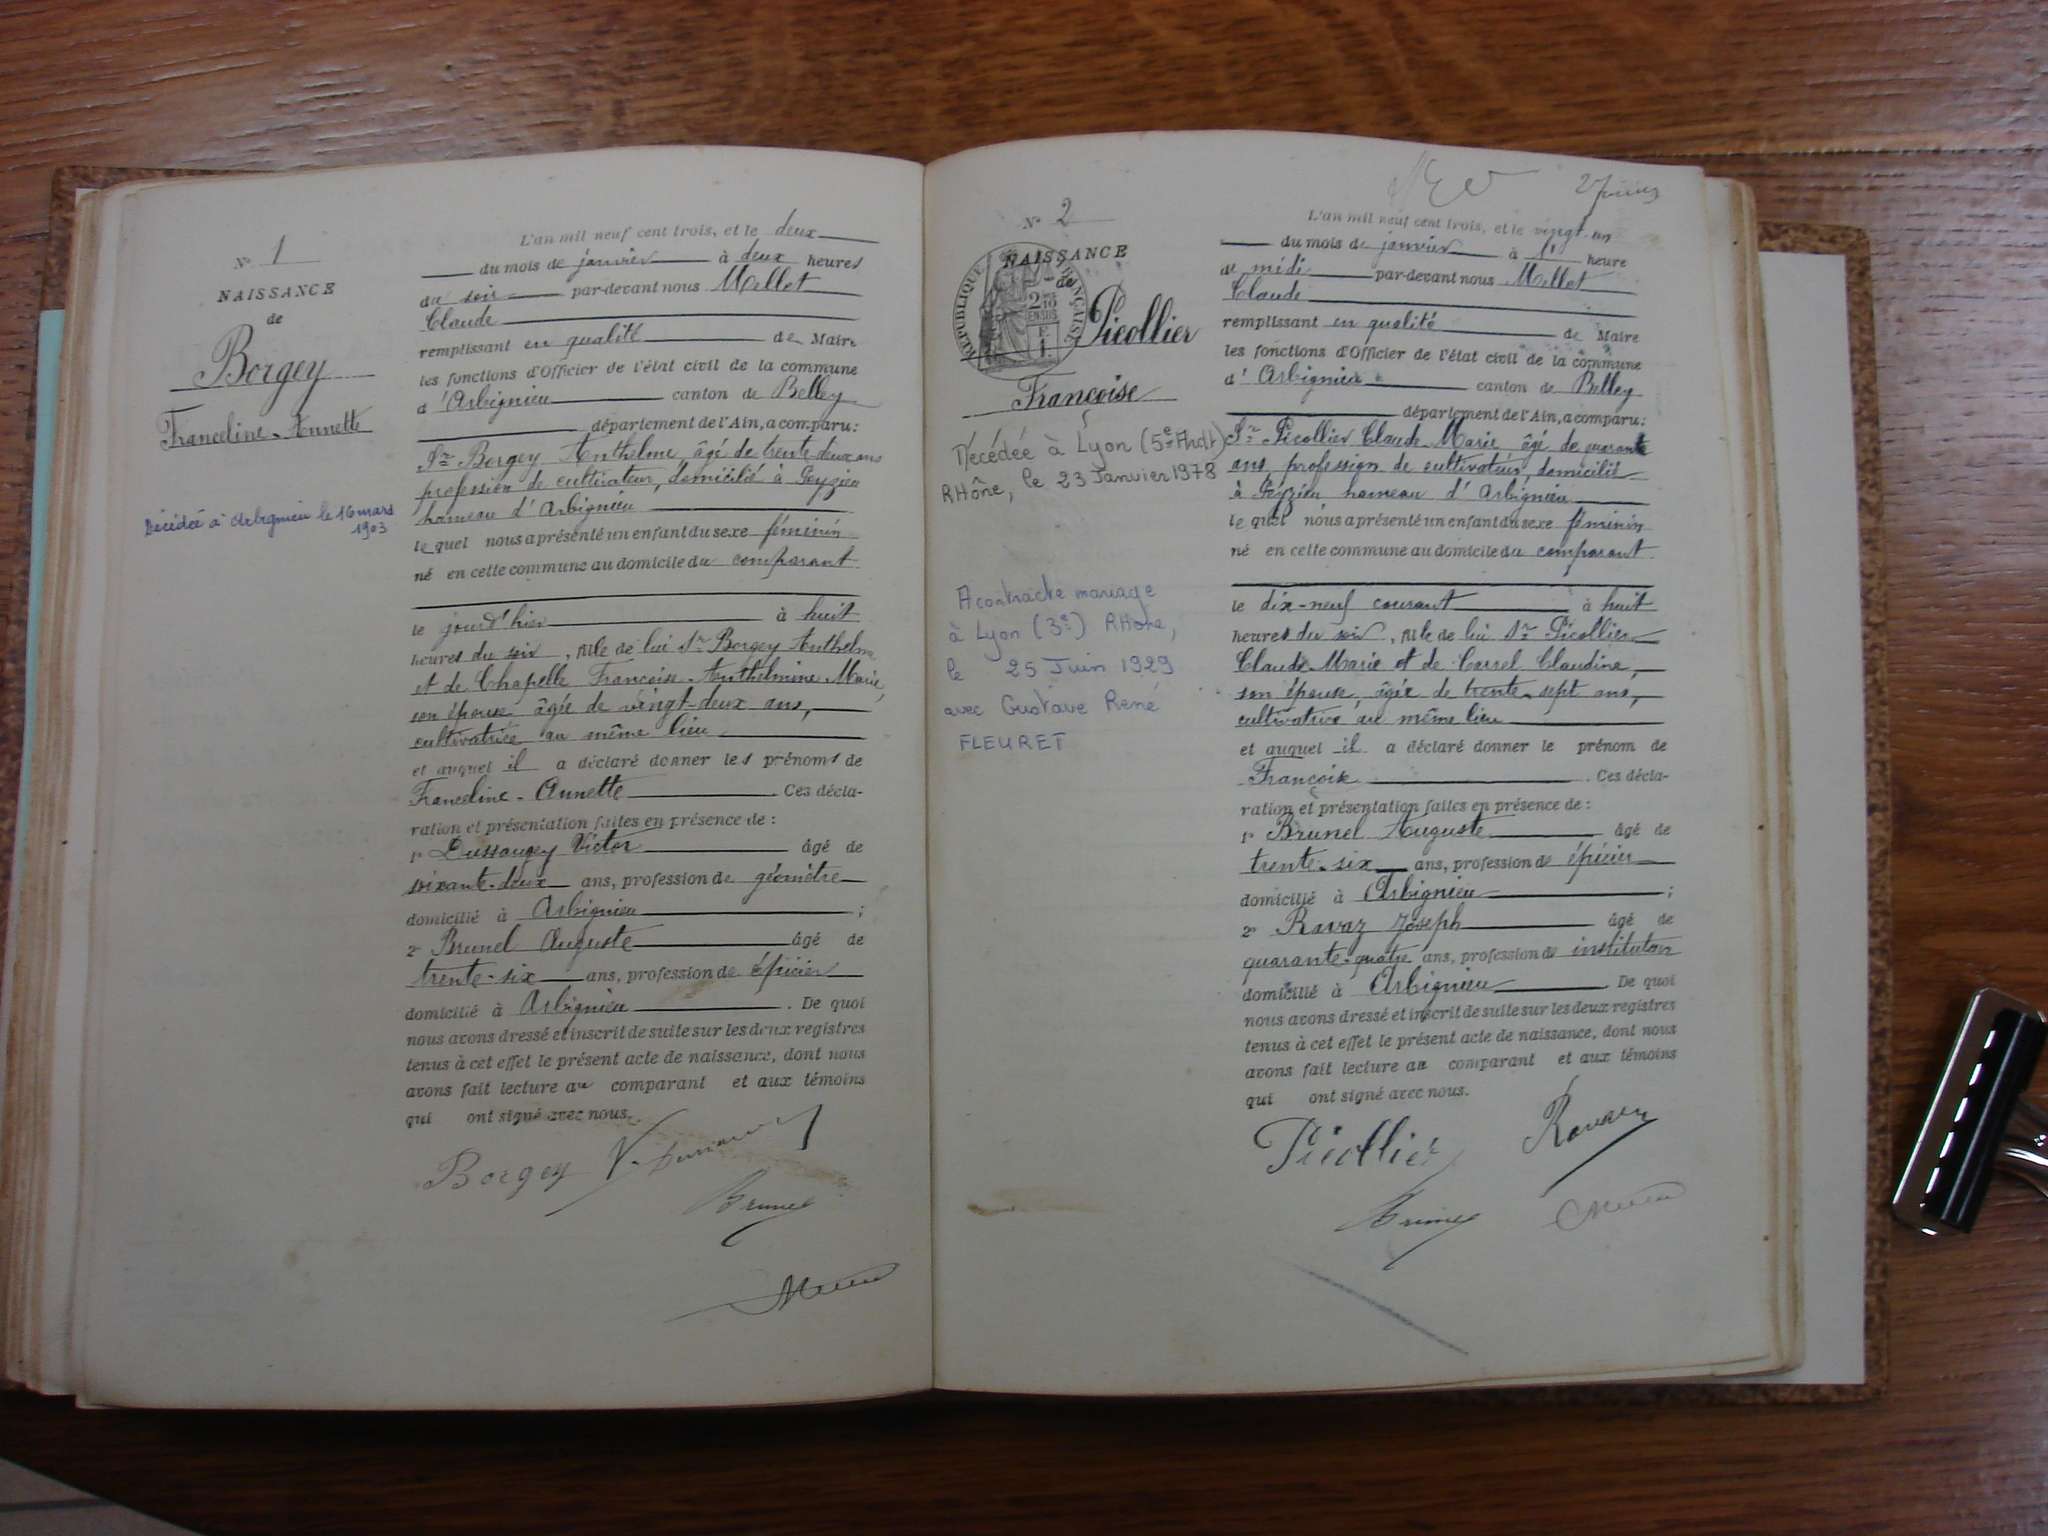 N° 1
NAISSANCE
de
Borgey
Franceline-Annette
Décédée à Arbignieu le 16 mars
1903
L'an mil neuf cent trois, et le deux
du mois de janvier à deux heures
du soir par-devant nous Mellet
Claude
remplissant en qualité de Maire
les fonctions d'Officier de l'état civil de la commune
d'Arbignieu canton de Belley
département de l'Ain, a comparu:
Sr Borgey Anthelme, âgé de trente-deux ans
profession de cultivateur, domicilié à Peyzieu
hameau d'Arbignieu
le quel nous a présenté un enfant du sexe féminin
né en cette commune au domicile du comparant
le jour d'hier à huit
heures du soir, fille de lui Sr Borgey Anthelme
et de Chapelle Françoise Anthelmine Marie,
son épouse âgée de vingt-deux ans,
cultivatrice au même lieu
et auquel il a déclaré donner les prénoms de
Franceline-Annette. Ces décla-
ration et présentation faites en présence de :
1° Dussauzey Victor âgé de
soixante-deux ans, profession de géomètre
domicilié à Arbignieu ;
2° Brunel Auguste âgé de
trente-six ans, profession de épicier
domicilié à Arbignieu. De quoi
nous avons dressé et inscrit de suite sur les deux registres
tenus à cet effet le présent acte de naissance, dont nous
avons fait lecture au comparant et aux témoins
qui ont signé avec nous.
Borgey
Brunel
N° 2
NAISSANCE
de
RÉPUBLIQUE FRANÇAISE
Picollier
Françoise
Décédée à Lyon (5e Ardt)
RHône, le 23 Janvier 1978
A contracté mariage
à Lyon (3e) RHône,
le 25 Juin 1929
avec Gustave René
FLEURET
L'an mil neuf cent trois, et le vingt-un
du mois de janvier à 1 heure
de midi par-devant nous Mellet
Claude
remplissant en qualité de Maire
les fonctions d'Officier de l'état civil de la commune
d'Arbignieu canton de Belley
département de l'Ain, a comparu:
Sr Picollier Claude-Marie âgé de quarante
ans profession de cultivateur, domicilié
à Peyzieu hameau d'Arbignieu
le quel nous a présenté un enfant du sexe féminin
né en cette commune au domicile du comparant
le dix-neuf courant à huit
heures du soir, fille de lui Sr Picollier
Claude-Marie et de Carrel Claudine,
son épouse, âgée de trente-sept ans,
cultivatrice au même lieu
et auquel il a déclaré donner le prénom de
Françoise. Ces décla-
ration et présentation faites en présence de :
1° Brunel Auguste âgé de
trente-six ans, profession de épicier
domicilié à Arbignieu ;
2° Ravaz Joseph âgé de
quarante-quatre ans, profession de instituteur
domicilié à Arbignieu. De quoi
nous avons dressé et inscrit de suite sur les deux registres
tenus à cet effet le présent acte de naissance, dont nous
avons fait lecture au comparant et aux témoins
qui ont signé avec nous.
Picollier